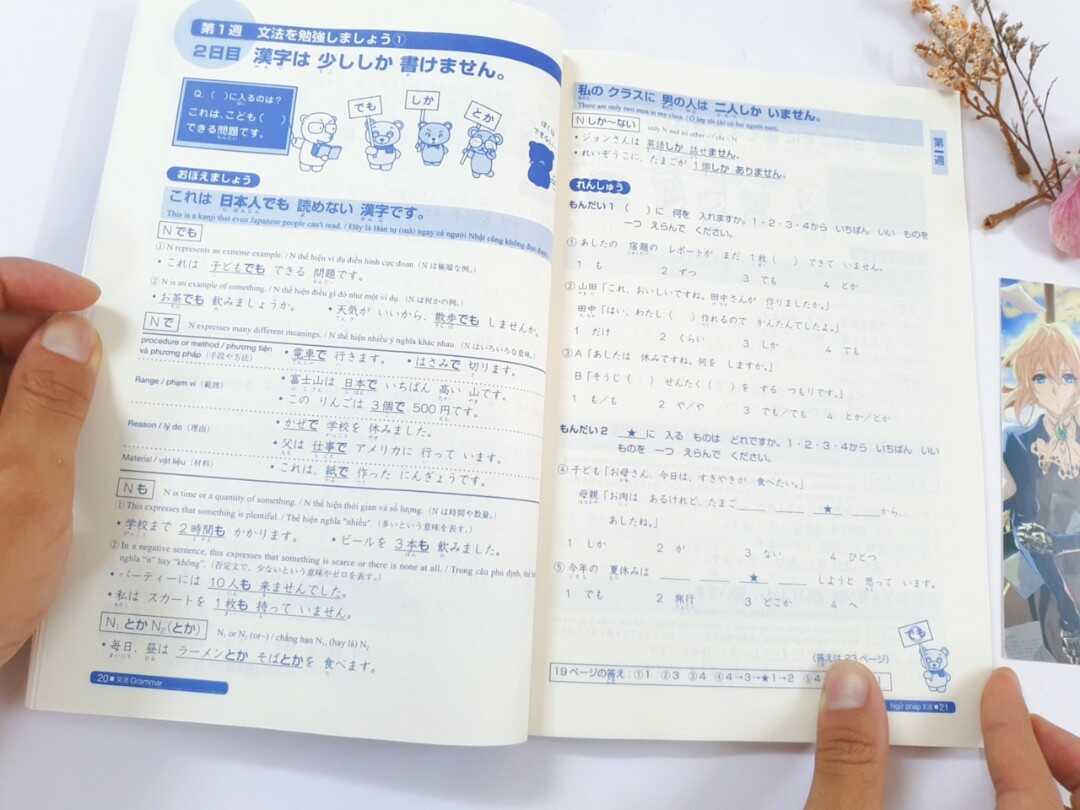 第1週 文法を勉強しましょう①
2日目 漢字は 少ししか 書けません。
Q.( )に入るのは?
これは、こども( )
できる問題です。
でも
しか
とか
おぼえましょう
これは 日本人でも 読めない 漢字です。
This is a kanji that even Japanese people can't read. / Đây là Hán tự (mà) ngay cả người Nhật cũng không đọc được
N でも
① N represents an extreme example. / N thể hiện ví dụ điển hình cực đoan (N は極端な例。)
・これは 子どもでも できる 問題です。
② N is an example of something. / N thể hiện điều gì đó như một ví dụ. (N は何かの例。)
・お茶でも 飲みましょうか。 ・天気が いいから、散歩でも しませんか。
N で N expresses many different meanings. / N thể hiện nhiều ý nghĩa khác nhau. (N はいろいろな意味。)
procedure or method / phương tiện và phương pháp (手段や方法) ・電車で 行きます。 ・はさみで 切ります。
Range / phạm vi (範囲) ・富士山は 日本で いちばん 高い 山です。
・この りんごは 3個で 500円です。
Reason / lý do (理由) ・かぜで 学校を 休みました。
・父は 仕事で アメリカに 行って います。
Material / vật liệu (材料) ・これは、紙で 作った にんぎょうです。
N も N is time or a quantity of something. / N thể hiện thời gian và số lượng. (N は時間や数量。)
① This expresses that something is plentiful. / Thể hiện nghĩa "nhiều". (多いという意味を表す。)
・学校まで 2時間も かかります。 ・ビールを 3本も 飲みました。
② In a negative sentence, this expresses that something is scarce or there is none at all. / Trong câu phủ định,
nghĩa "ít" hay "không". (否定文で、少ないという意味やゼロを表す。)
・パーティーには 10人も 来ませんでした。
・私は スカートを 1枚も 持って いません。
N₁ とか N₂(とか) N₁ or N₂ (or~) / chẳng hạn N₁, (hay là) N₂
・毎日、昼は ラーメンとか そばとかを 食べます。
20 ■ 文法 Grammar
私の クラスに 男の人は 二人しか いません。
There are only two men in my class.
N しか〜ない only N and no other
・ジョンさんは 英語しか 話せません。
・れいぞうこに、たまごが 1個しか ありません。
第一週
れんしゅう
もんだい1 ( )に 何を 入れますか。1・2・3・4から いちばん いい ものを
一つ えらんで ください。
① あしたの 宿題の レポートが まだ 1枚( )できて いません。
1 も 2 ずつ 3 でも 4 とか
② 山田「これ、おいしいですね。田中さんが 作りましたか。」
田中「はい、わたし( )作れるので かんたんでしたよ。」
1 だけ 2 くらい 3 しか 4 でも
③ A「あしたは 休みですね。何を しますか。」
B「そうじ( )せんたく( )を する つもりです。」
1 も/も 2 や/や 3 でも/でも 4 とか/とか
もんだい2 ★ に 入る ものは どれですか。1・2・3・4から いちばん いい
ものを 一つ えらんで ください。
④ 子ども「お母さん、今日は、すきやきが 食べたい。」
母親「お肉は あるけれど、たまご____ ____ __★__ ____から、
あしたね。」
1 しか 2 が 3 ない 4 ひとつ
⑤ 今年の 夏休みは ____ ____ __★__ ____ しようと 思って います。
1 でも 2 旅行 3 どこか 4 へ
でも
(答えは 23 ページ)
19ページの答え:①1 ②3 ③4 ④4→3→★1→2 ⑤4
Ngữ pháp 文法 ■ 21